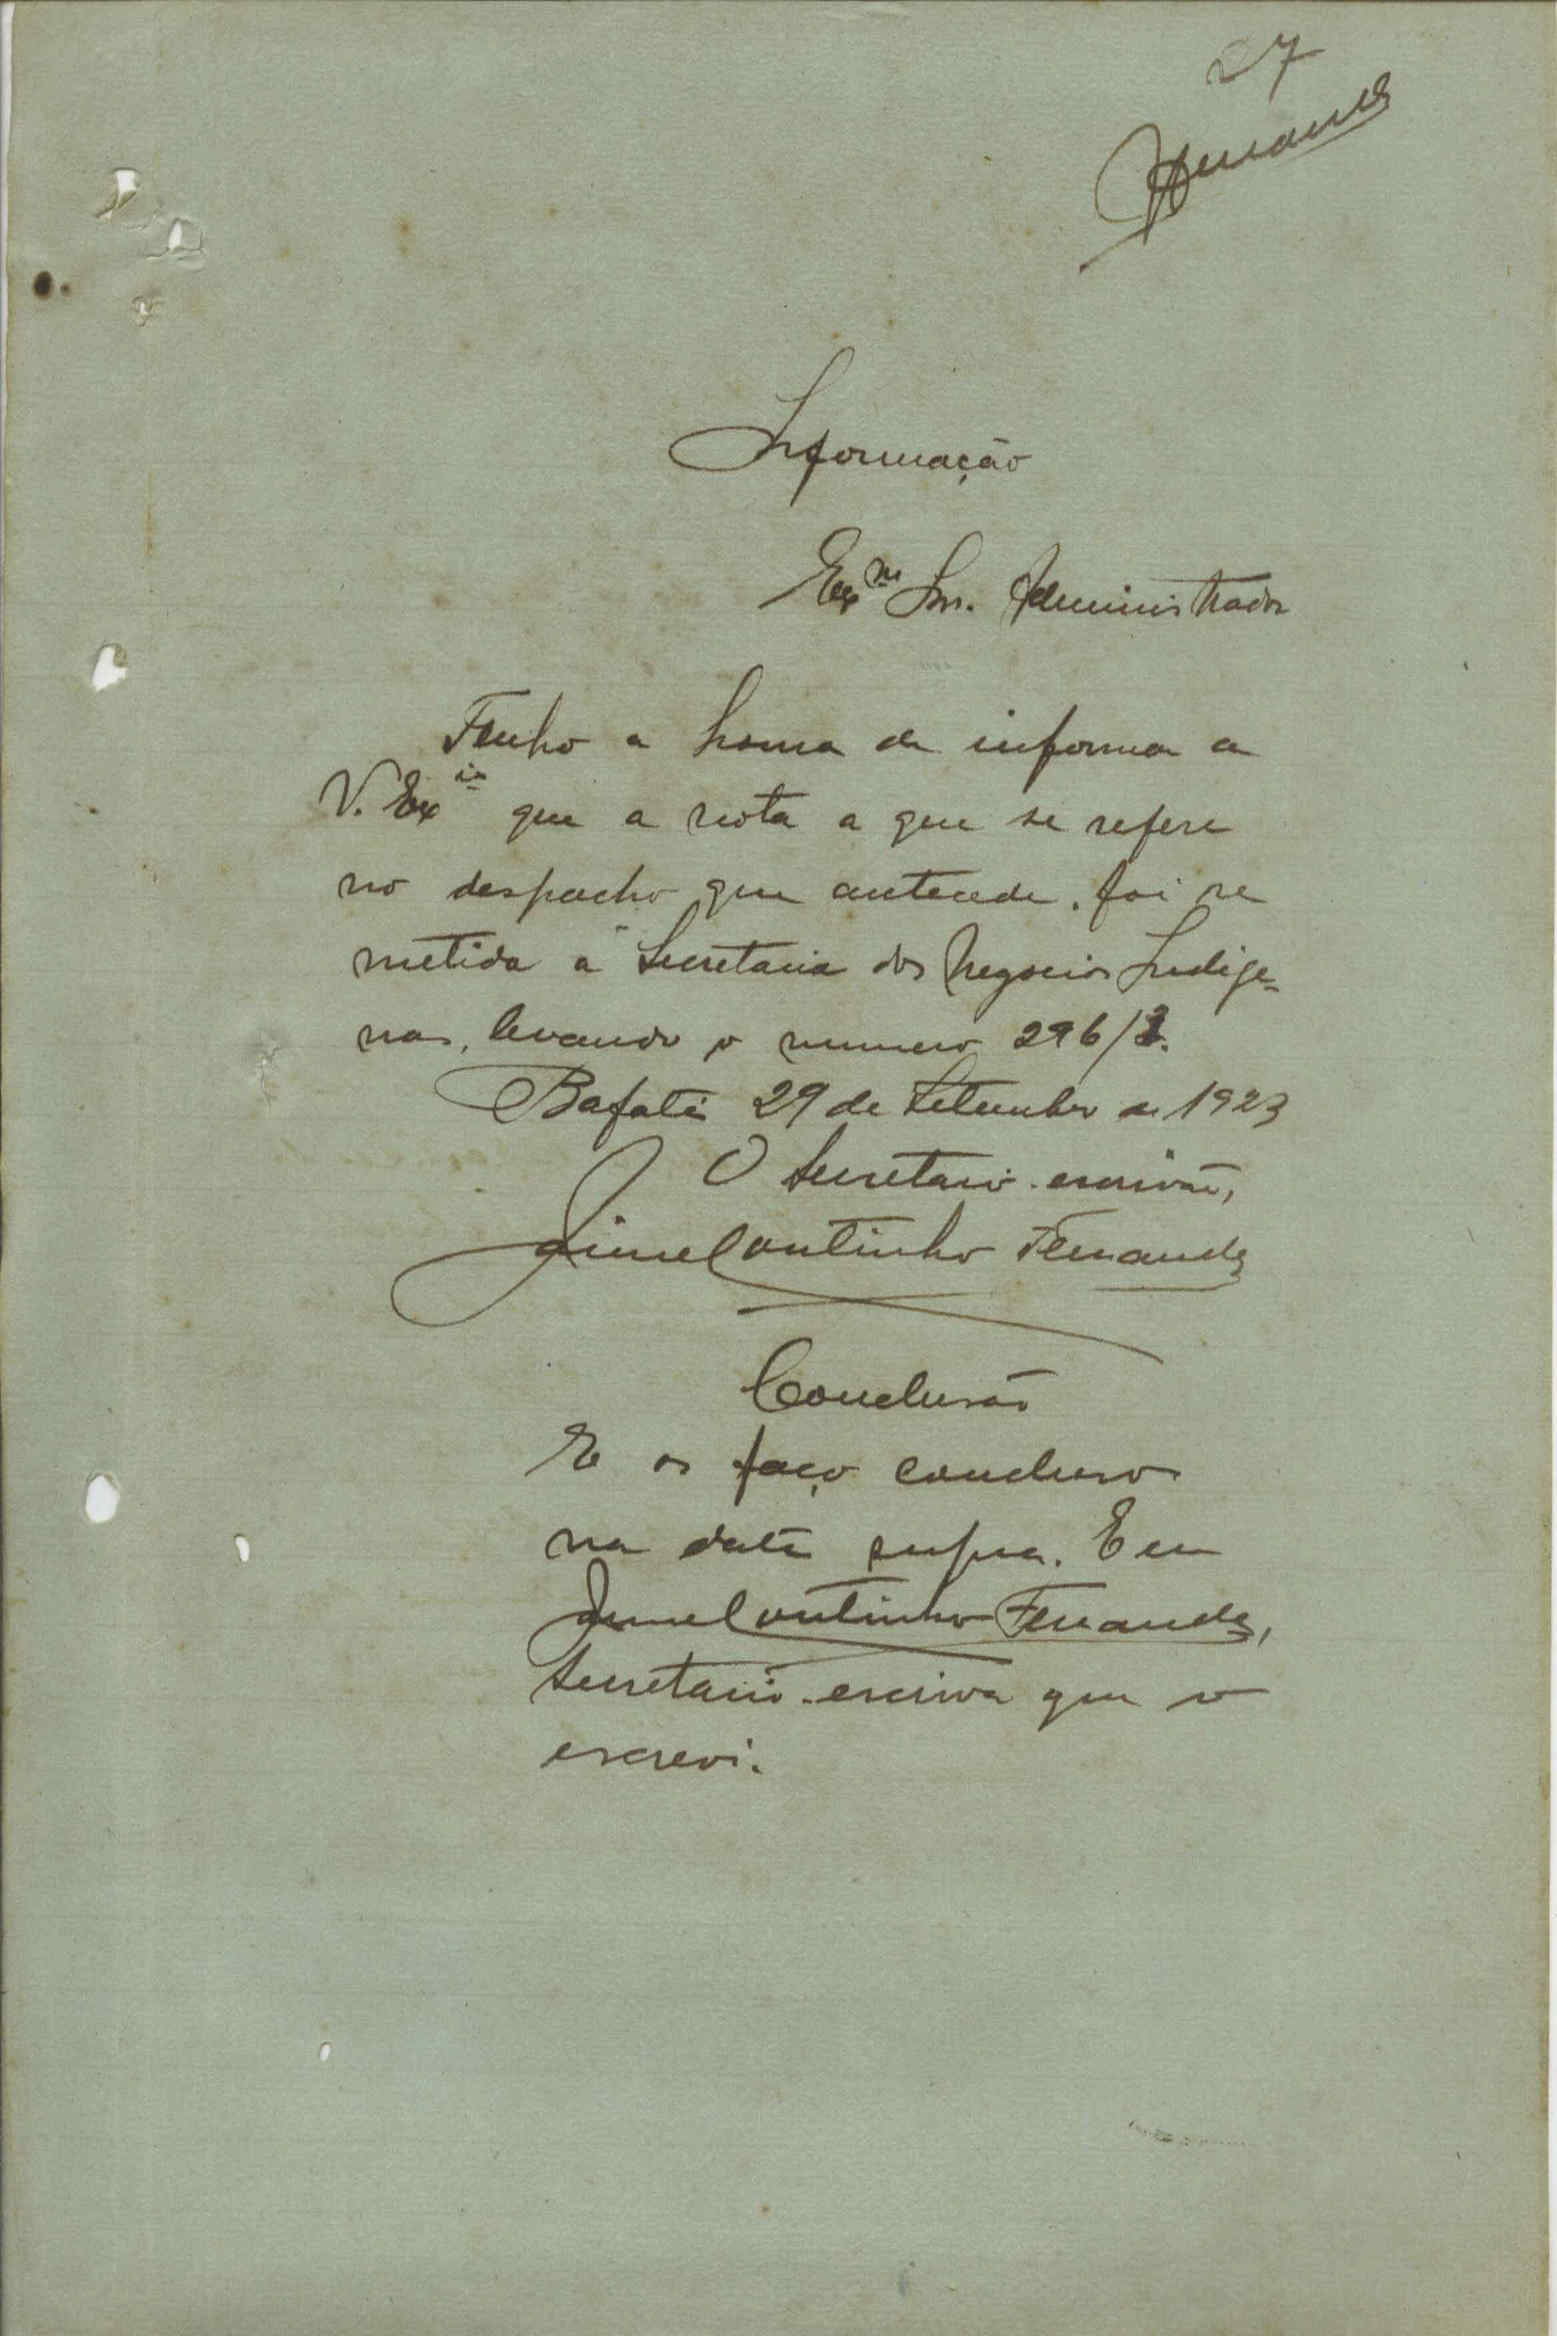 27
Fernandes
Informação
Exmo Snr. Administrador
Tenho a honra de informar a
V. Excia que a nota a que se refere
no despacho que antecede, foi re
metida á Secretaria dos Negocios Indige-
nas, levando o numero 296/3.
Bafatá 29 de Setembro de 1923
O Secretario-escrivão,
Jaime Coutinho Fernandes
Conclusão
E os faço conclusos
na data supra. E eu
Jaime Coutinho Fernandes,
Secretario-escrivão que o
escrevi.